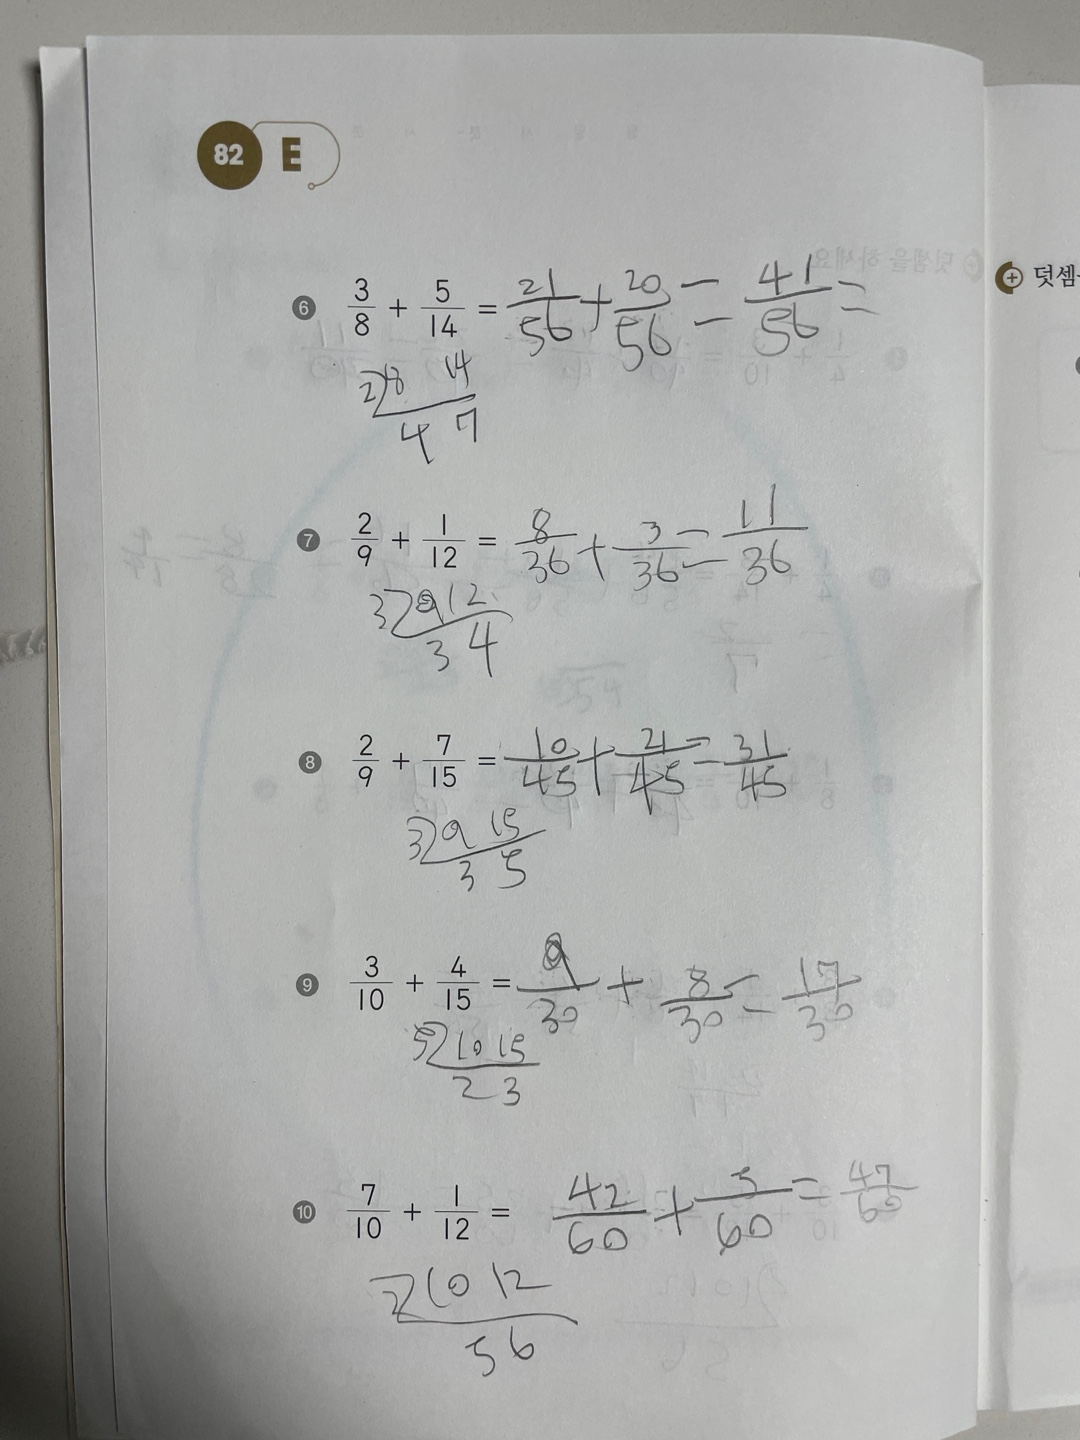 82 E
덧셈
6 3/8 + 5/14 = 21/56 + 20/56 = 41/56 =
2) 8 14
4 7
7 2/9 + 1/12 = 8/36 + 3/36 = 11/36
3) 9 12
3 4
8 2/9 + 7/15 = 10/45 + 21/45 = 31/45
3) 9 15
3 5
9 3/10 + 4/15 = 9/30 + 8/30 = 17/30
5) 10 15
2 3
10 7/10 + 1/12 = 42/60 + 5/60 = 47/60
2) 10 12
5 6